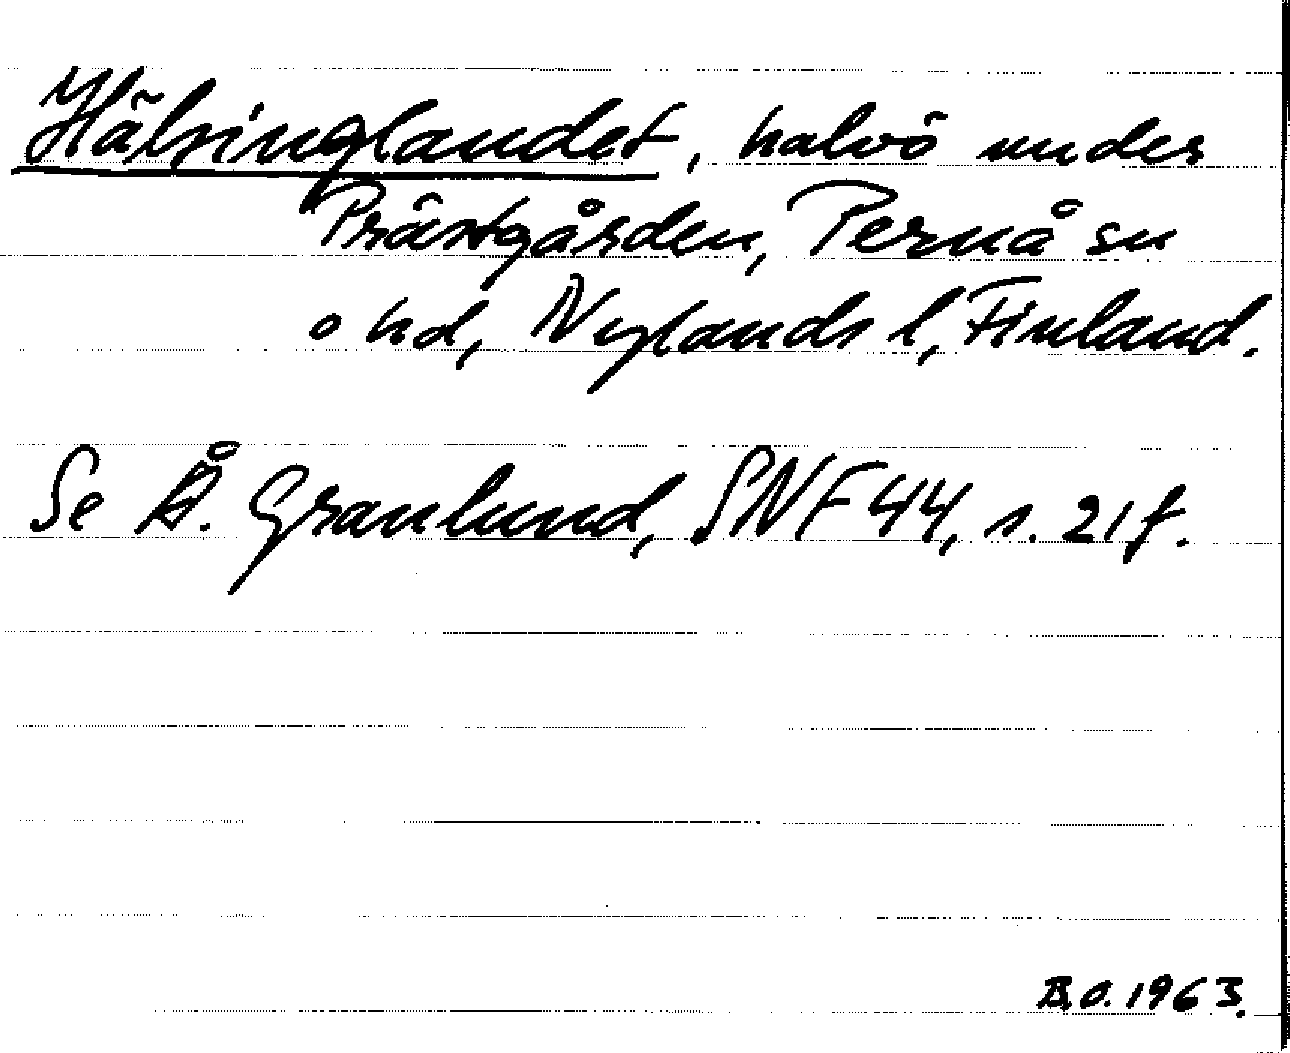 Hälsinglandet, halvö under
Prästgården, Pernå sn
o hd, Nylands l, Finland.
Se Å. Granlund, SNF 44, s. 21 f.
B.O. 1963.